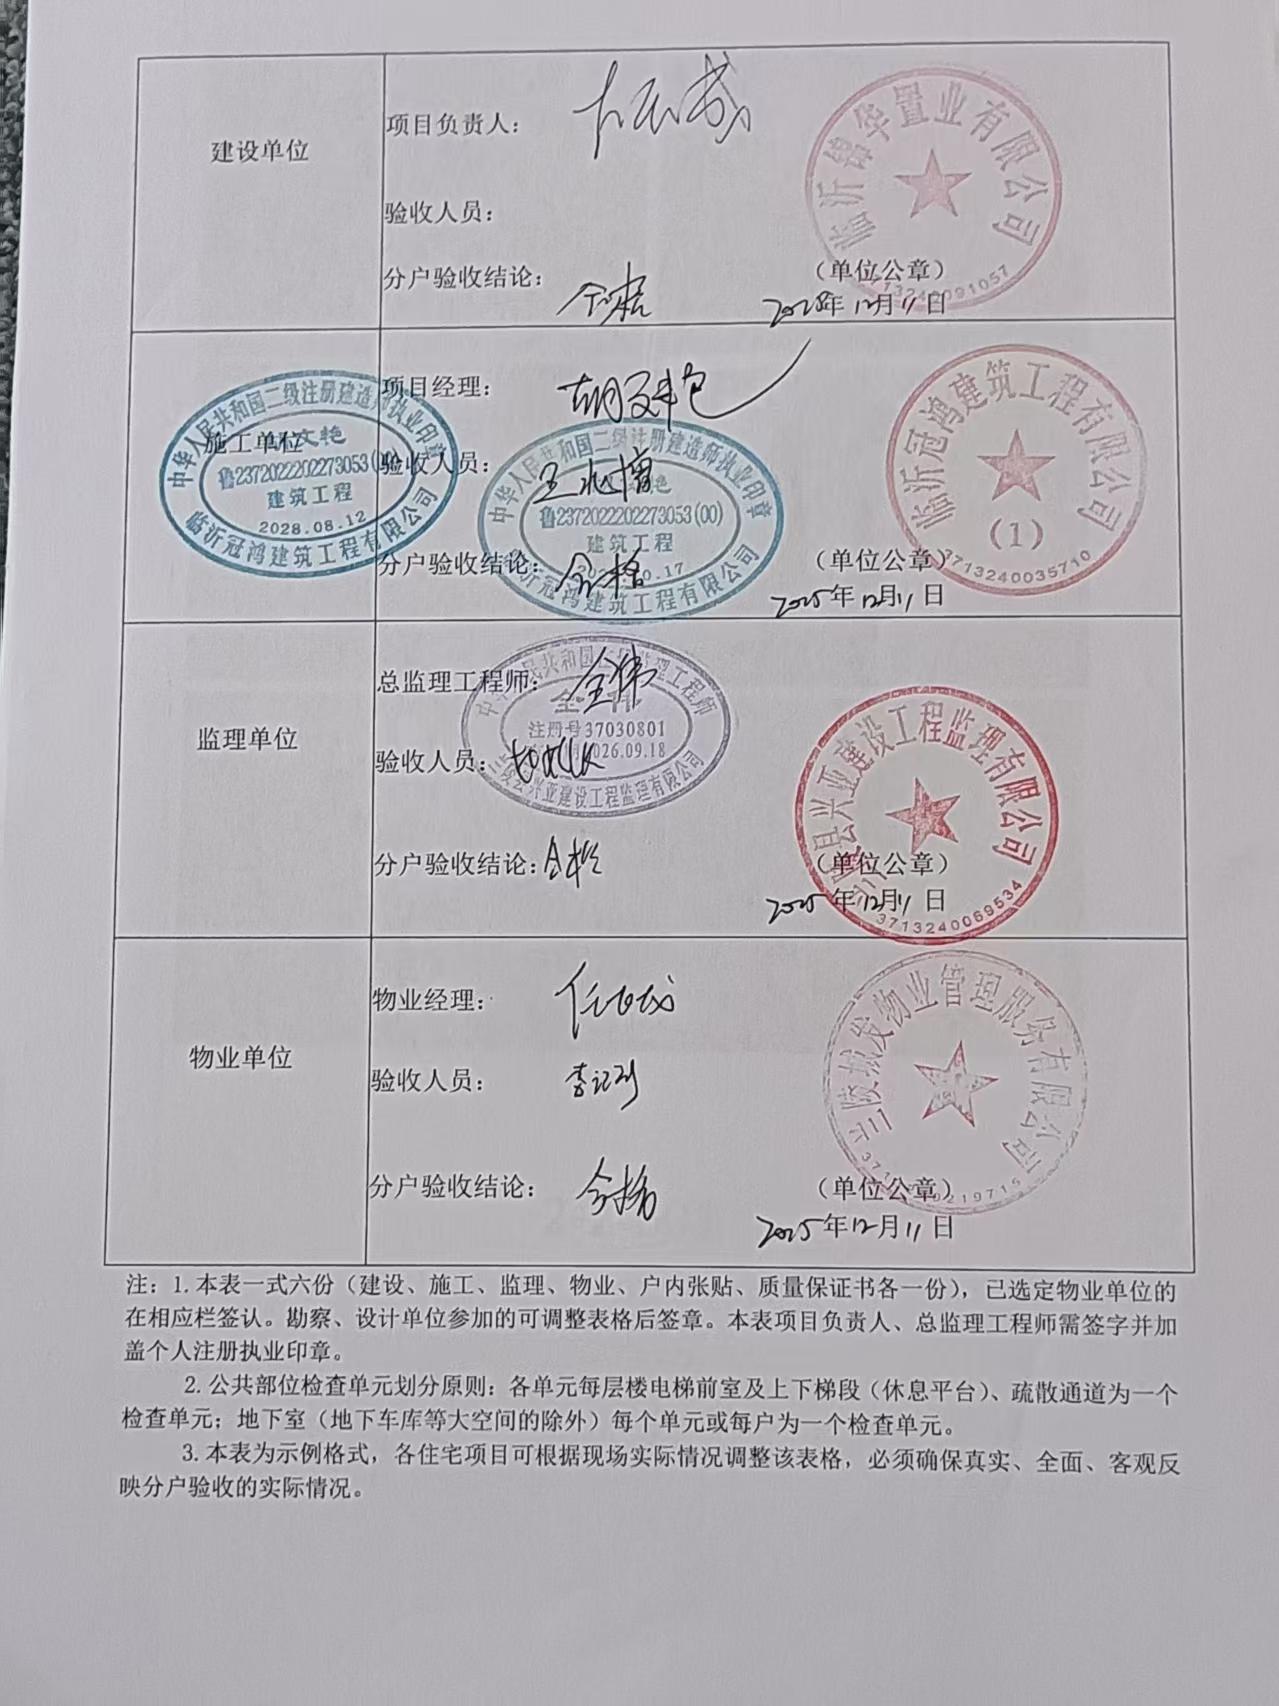 建设单位
项目负责人：
验收人员：
分户验收结论：
合格
临沂锦华置业有限公司
（单位公章）
年12月11日
施工单位
项目经理：
胡文艳
验收人员：
王兆增
分户验收结论：
合格
中华人民共和国二级注册建造师执业印章
文艳
鲁2372022202273053(00)
建筑工程
2028.08.12
临沂冠鸿建筑工程有限公司
中华人民共和国二级注册建造师执业印章
艳
鲁2372022202273053(00)
建筑工程
临沂冠鸿建筑工程有限公司
临沂冠鸿建筑工程有限公司
(1)
3713240035710
（单位公章）
2025年12月11日
监理单位
总监理工程师：
全伟
注册号37030801
2026.09.18
兴亚建设工程监理有限公司
验收人员：
分户验收结论：
合格
兰陵县兴亚建设工程监理有限公司
3713240069534
（单位公章）
2025年12月11日
物业单位
物业经理：
验收人员：
分户验收结论：
合格
兰陵城发物业管理服务有限公司
（单位公章）
2025年12月11日
注：1.本表一式六份（建设、施工、监理、物业、户内张贴、质量保证书各一份），已选定物业单位的
在相应栏签认。勘察、设计单位参加的可调整表格后签章。本表项目负责人、总监理工程师需签字并加
盖个人注册执业印章。
2.公共部位检查单元划分原则：各单元每层楼电梯前室及上下梯段（休息平台）、疏散通道为一个
检查单元；地下室（地下车库等大空间的除外）每个单元或每户为一个检查单元。
3.本表为示例格式，各住宅项目可根据现场实际情况调整该表格，必须确保真实、全面、客观反
映分户验收的实际情况。